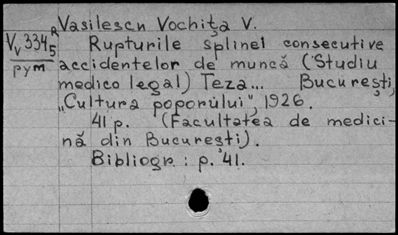 Vasilescu Vochița V.
Vv 3345R
pym
Rupturile splinei consecutive
accidentelor de muncă (Studiu
medico legal) Teza... București,
„Cultura poporului", 1926.
41 p. (Facultatea de medici-
nă din București).
Bibliogr.: p. 41.